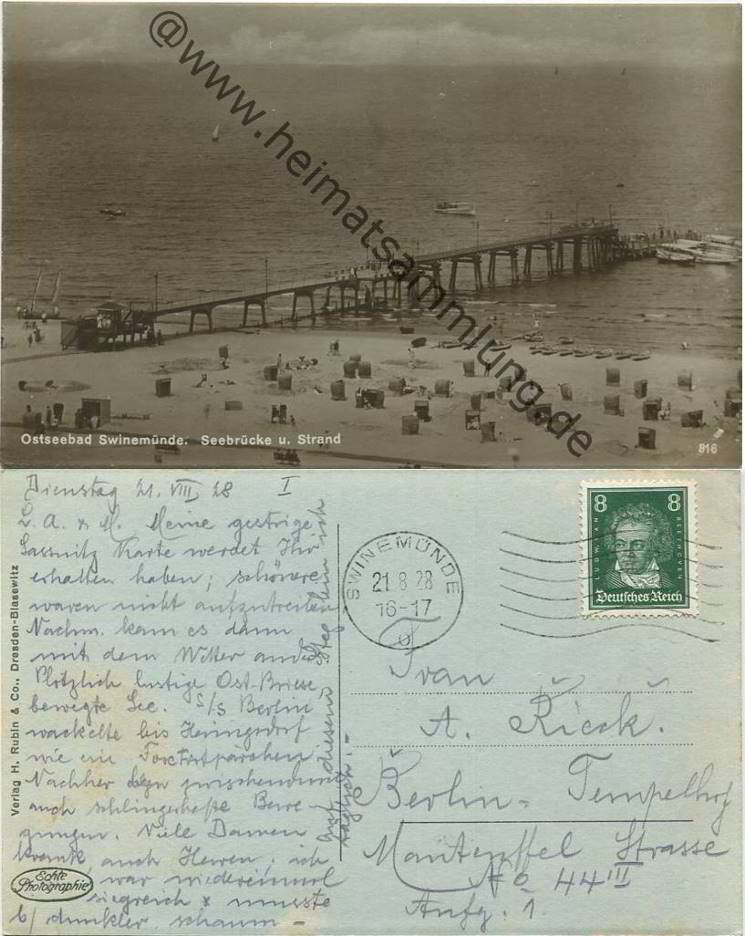 @www.heimatsammlung.de
Ostseebad Swinemünde. Seebrücke u. Strand
916
Dienstag 21. VIII 28 I
L. A. & M. Meine gestrige
Sassnitz Karte werdet Ihr
erhalten haben; schönere
waren nicht aufzutreiben
Nachm. kam es dann
mit dem Wetter anders
Plötzlich lustige Ost-Briese,
bewegte See. S/S Berlin
wackelte bis Heringsdorf
wie ein
Nachher
auch schlingerhafte Bewe-
gungen. Viele Damen
krank, auch Herren; ich
war wiedereinmal
siegreich & musste
b/ dunkler, schaum-
diesem Steg bin ich
täglich.-
Verlag H. Rubin & Co., Dresden-Blasewitz
Echte
Photographie
SWINEMÜNDE
21.8.28
16-17
8 8
LUDWIG VAN BEETHOVEN
Deutsches Reich
A. Rieck.
Berlin- Tempelhof
Manteuffel Strasse
No 44 III
Aufg. 1